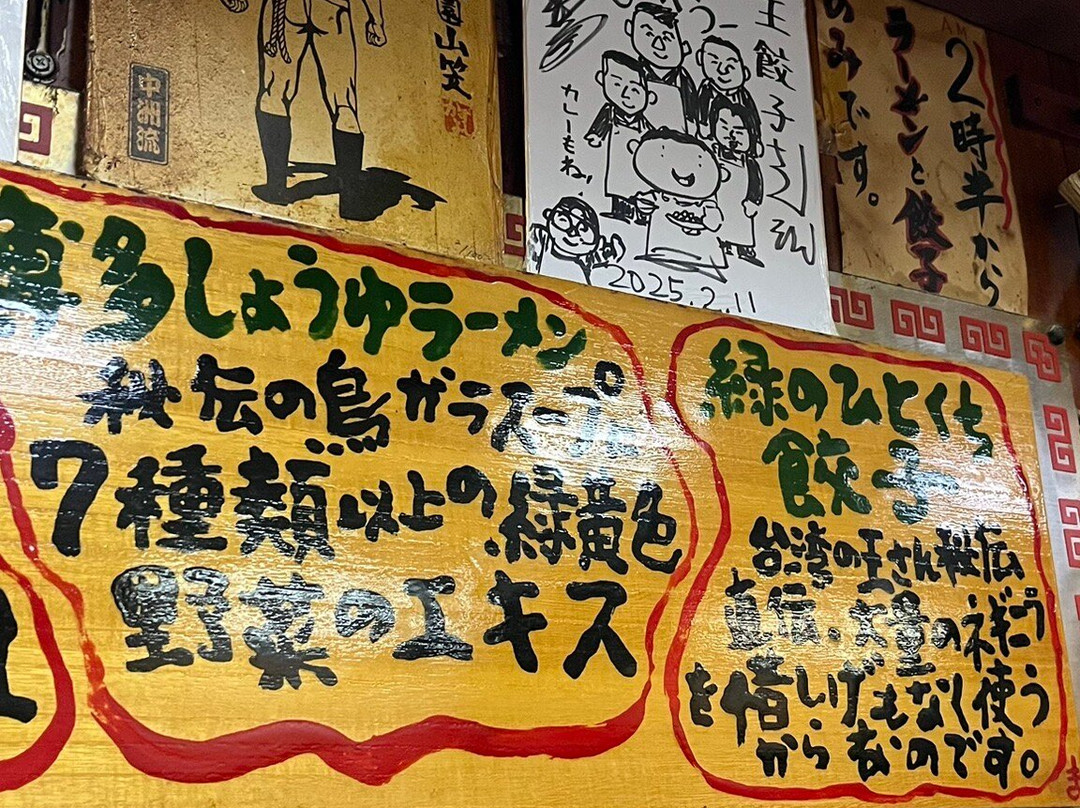 山笑
中洲流
王餃子さん
カレーもね!
2025.2.11
AM
2時半から
ラーメンと餃子
のみです。
博多しょうゆラーメン
秘伝の鳥ガラスープ
7種類以上の
緑黄色
野菜のエキス
緑のひとくち
餃子
台湾の王さん秘伝
直伝、大量のネギニラ
を惜しげもなく使う
からあのです。